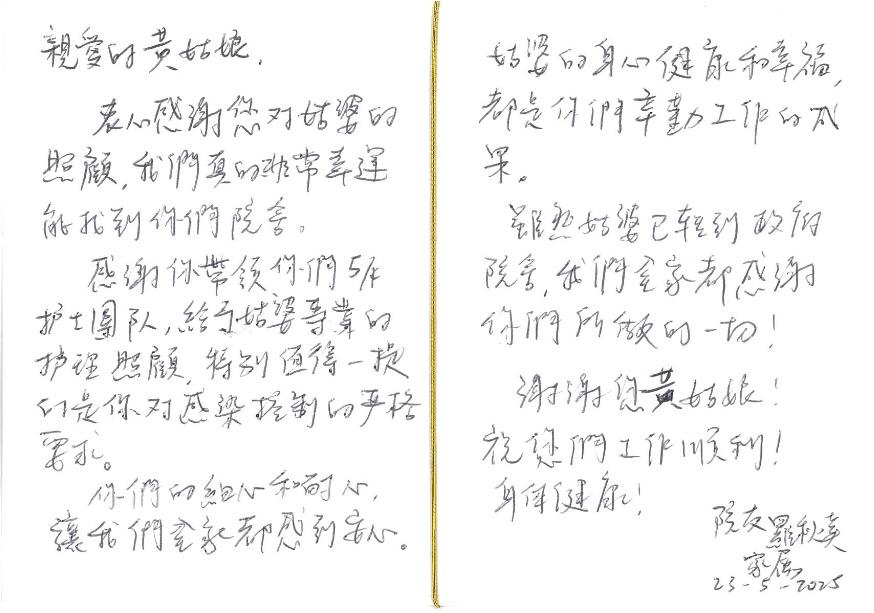 親愛的黃姑娘,
衷心感謝您对姑婆的
照顧,我們真的非常幸運
能找到你們院舍。
感謝你帶領你們5/F
护士團队,給予姑婆專業的
护理照顧,特別值得一提
的是你对感染控制的严格
要求。
你們的細心和耐心,
讓我們全家都感到安心。
姑婆的身心健康和幸福,
都是你們辛勤工作的成
果。
雖然姑婆已轉到政府
院舍,我們全家都感謝
你們所做的一切!
謝謝您黃姑娘!
祝您們工作順利!
身体健康!
院友羅秋
家属
23-5-2025